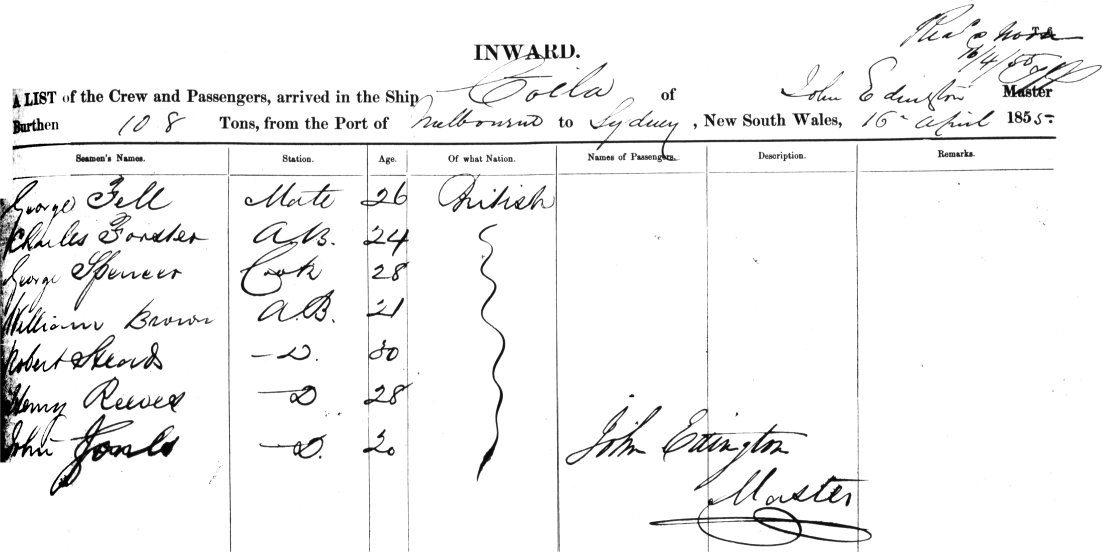 INWARD.
16/4/55
A LIST of the Crew and Passengers, arrived in the Ship Coila of John Edington Master
Burthen 108 Tons, from the Port of Melbourne to Sydney, New South Wales, 16th April 1855
Seamen's Names. Station. Age. Of what Nation. Names of Passengers. Description. Remarks.
George Fell Mate 26 British
Charles Forster A.B. 24
George Spencer Cook 28
William Brown A.B. 21
Robert D. 30
Henry Reeves D 28
John Jones D. 20
John Edington
Master